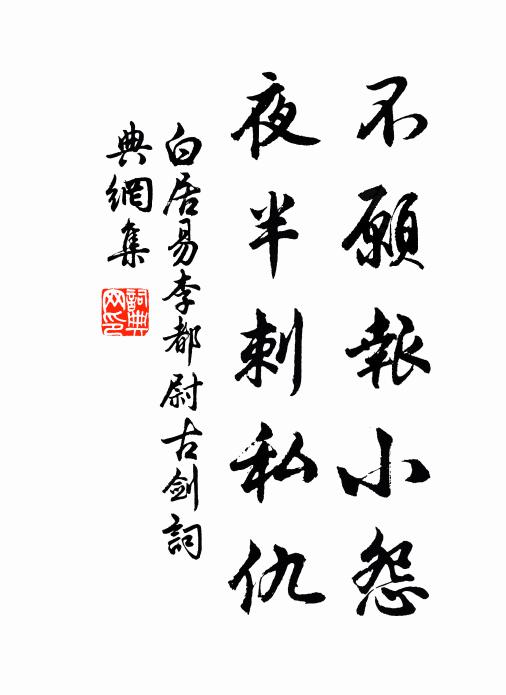 不願報小怨
夜半刺私仇
白居易李都尉古剑詞
典網集
詞典
网印